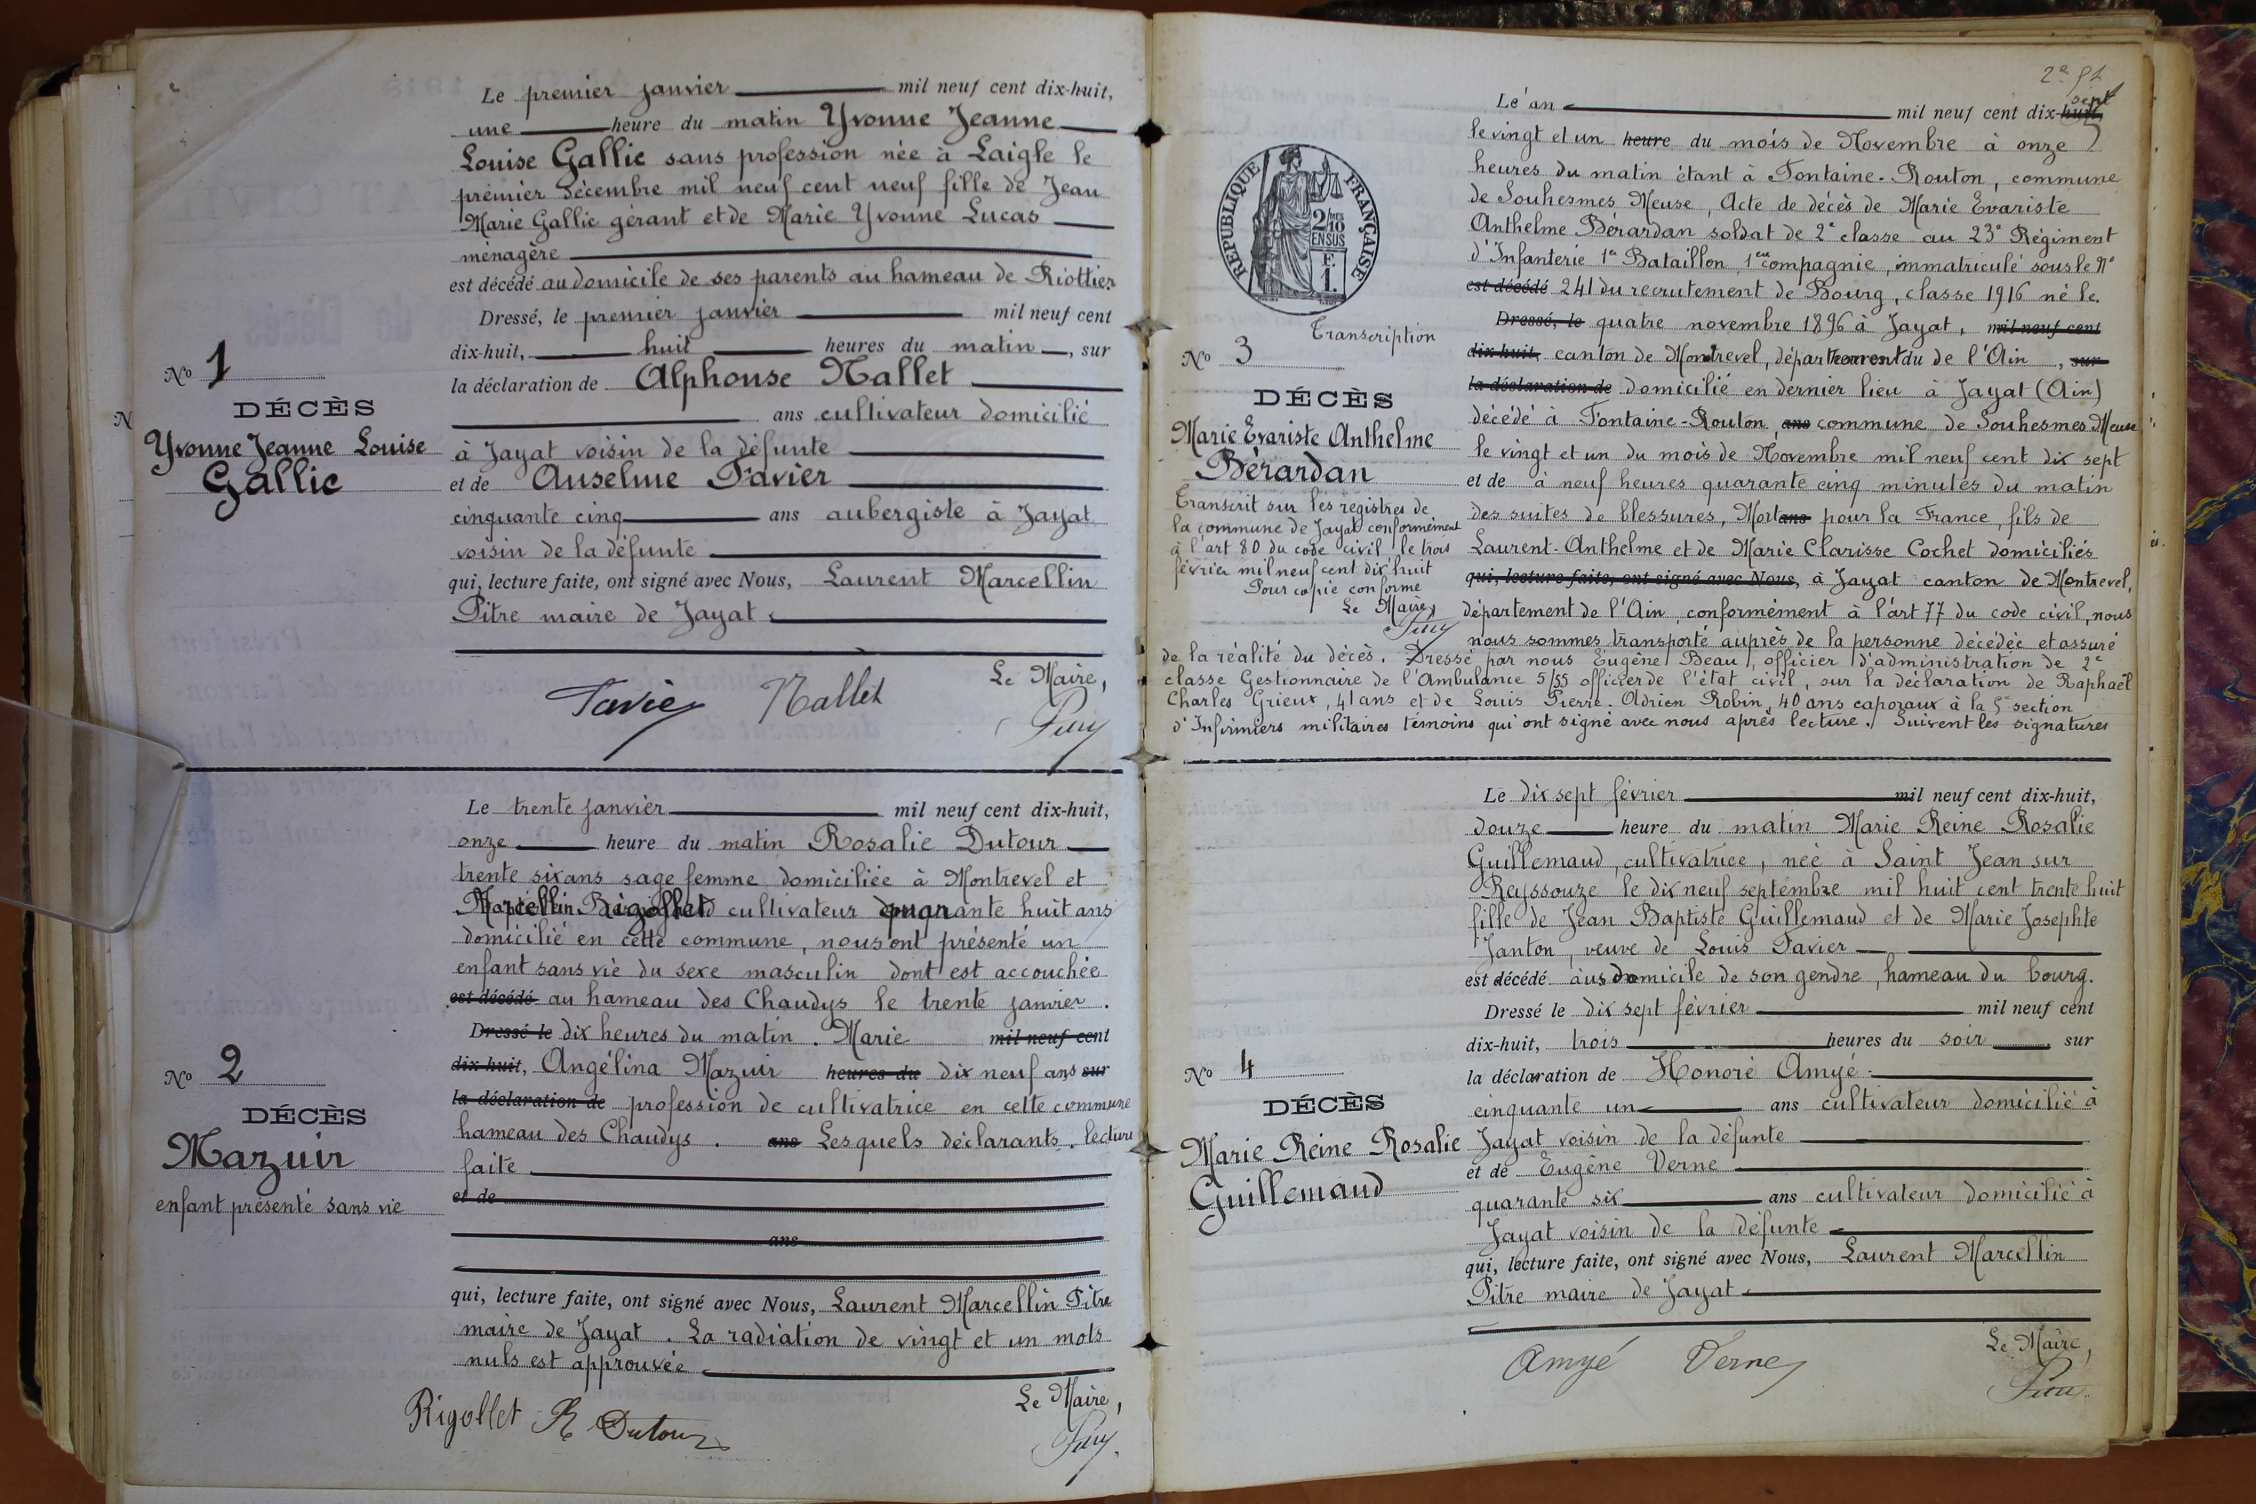 Le premier janvier mil neuf cent dix-huit,
une heure du matin Yvonne Jeanne
Louise Gallic sans profession née à Laigle le
premier Décembre mil neuf cent neuf fille de Jean
Marie Gallic gérant et de Marie Yvonne Lucas
ménagère
est décédé au domicile de ses parents au hameau de Riottier
Dressé, le premier janvier mil neuf cent
dix-huit, huit heures du matin, sur
la déclaration de Alphonse Nallet
ans cultivateur domicilié
à Jayat voisin de la défunte
et de Anselme Favier
cinquante cinq ans aubergiste à Jayat
voisin de la défunte
qui, lecture faite, ont signé avec Nous, Laurent Marcellin
Pitre maire de Jayat
Le Maire,
Favier Nallet
No 1
DÉCÈS
Yvonne Jeanne Louise
Gallic
Le trente janvier mil neuf cent dix-huit,
onze heure du matin Rosalie Dutour
trente six ans sage femme domiciliée à Montrevel et
Marcellin Rigollet cultivateur quarante huit ans
domicilié en cette commune, nous ont présenté un
enfant sans vie du sexe masculin dont est accouchée
est décédé au hameau des Chaudys le trente janvier.
Dressé le dix heures du matin. Marie mil neuf cent
dix-huit, Angélina Mazuir heures du dix neuf ans sur
la déclaration de profession de cultivatrice en cette commune
hameau des Chaudys. ans Lesquels déclarants. lecture
faite
et de
ans
qui, lecture faite, ont signé avec Nous, Laurent Marcellin Pitre
maire de Jayat. La radiation de vingt et un mots
nuls est approuvée
Le Maire,
Rigollet R Dutour
No 2
DÉCÈS
Mazuir
enfant présenté sans vie
Le an mil neuf cent dix-huit, sept
le vingt et un heure du mois de Novembre à onze
heures du matin étant à Fontaine-Routon, commune
de Souhesmes Meuse, Acte de décès de Marie Evariste
Anthelme Bérardan soldat de 2e classe au 23e Régiment
d'Infanterie 1er Bataillon, 1ère compagnie, immatriculé sous le No
est décédé 241 du recrutement de Bourg, classe 1916 né le
Dressé, le quatre novembre 1896 à Jayat, mil neuf cent
dix-huit, canton de Montrevel, département de l'Ain, sur
la déclaration de domicilié en dernier lieu à Jayat (Ain)
décédé à Fontaine-Routon, ans commune de Souhesmes Meuse
le vingt et un du mois de Novembre mil neuf cent dix sept
et de à neuf heures quarante cinq minutes du matin
des suites de blessures, Mort ans pour la France, fils de
Laurent-Anthelme et de Marie Clarisse Cochet domiciliés
qui, lecture faite, ont signé avec Nous, à Jayat canton de Montrevel,
département de l'Ain, conformément à l'art 77 du code civil, nous
nous sommes transporté auprès de la personne décédée et assuré
de la réalité du décès. Dressé par nous Eugène Beau, officier d'administration de 2e
classe Gestionnaire de l'Ambulance 5/55 officier de l'état civil, sur la déclaration de Raphaël
Charles Grieux, 41 ans et de Louis Pierre Adrien Robin, 40 ans caporaux à la 5e section
d'Infirmiers militaires témoins qui ont signé avec nous après lecture. Suivent les signatures
RÉPUBLIQUE FRANÇAISE
2/10
EN SUS
F.
1.
Transcription
No 3
DÉCÈS
Marie Evariste Anthelme
Bérardan
Transcrit sur les registres de
la commune de Jayat conformément
à l'art 80 du code civil le trois
février mil neuf cent dix huit
Pour copie conforme
Le Maire,
Le dix sept février mil neuf cent dix-huit,
douze heure du matin Marie Reine Rosalie
Guillemaud, cultivatrice, née à Saint Jean sur
Reyssouze le dix neuf septembre mil huit cent trente huit
fille de Jean Baptiste Guillemaud et de Marie Josephte
Janton, veuve de Louis Favier
est décédé au domicile de son gendre, hameau du bourg.
Dressé le dix sept février mil neuf cent
dix-huit, trois heures du soir, sur
la déclaration de Honoré Amyé
cinquante un ans cultivateur domicilié à
Jayat voisin de la défunte
et de Eugène Verne
quarante six ans cultivateur domicilié à
Jayat voisin de la défunte
qui, lecture faite, ont signé avec Nous, Laurent Marcellin
Pitre maire de Jayat
Le Maire,
Amyé Verne
No 4
DÉCÈS
Marie Reine Rosalie
Guillemaud